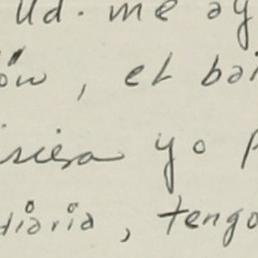 Ud. me ay
ón, el bai
isiera yo p
diaria, tengo